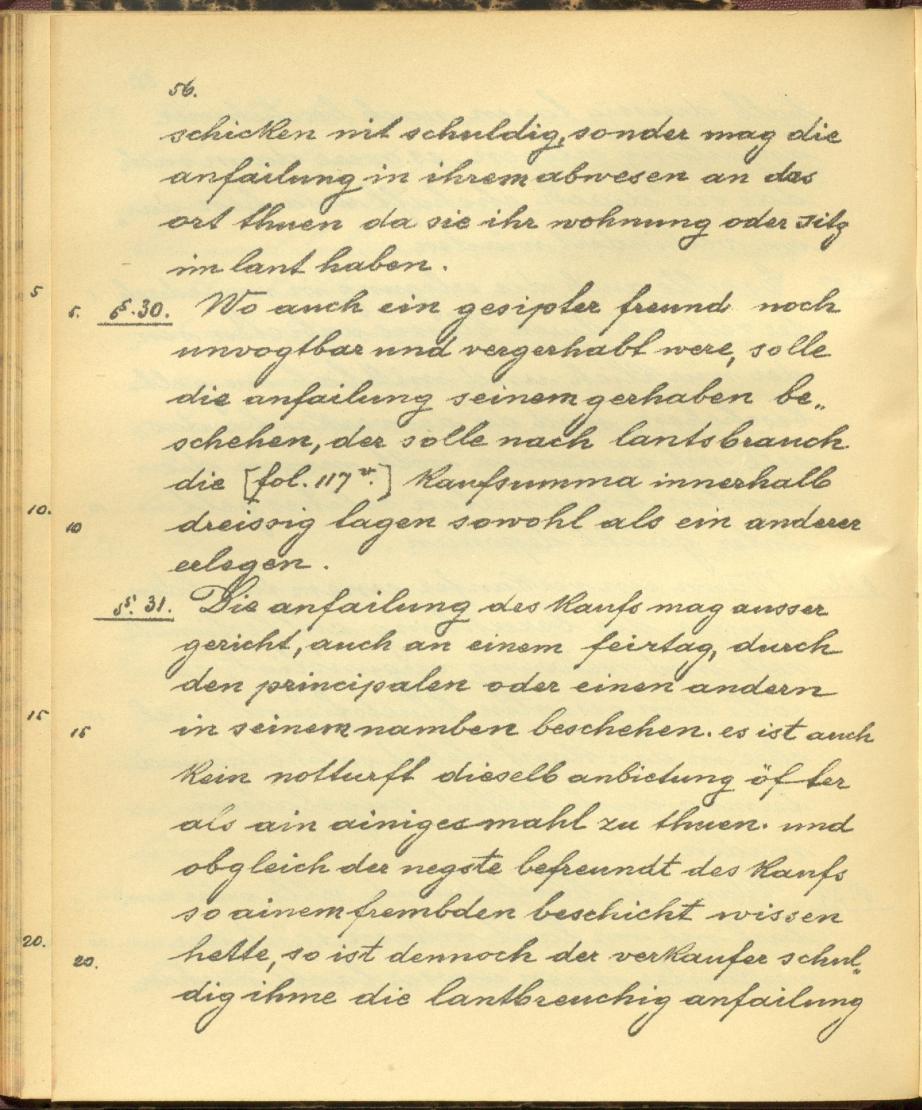 56.
schicken nit schuldig, sonder mag die
anfailung in ihrem abwesen an das
ort thuen da sie ihr wohnung oder sitz
im lant haben.
5
5. §.30. Wo auch ein gesipter freund noch
unvogtbar und vergerhabt were, solle
die anfailung seinem gerhaben be„
schehen, der solle nach lantsbrauch
die [fol. 117 v.] Kaufsumma innerhalb
10. 10 dreissig tagen sowohl als ein anderer
erlegen.
§. 31. Die anfailung des Kaufs mag ausser
gericht, auch an einem feirtag, durch
den principalen oder einen andern
15 15 in seinem namben beschehen. es ist auch
Kein notturft dieselb anbietung öfter
als ain ainiges mahl zu thuen. und
obgleich der negste befreundt des Kaufs
so ainem frembden beschicht wissen
20. 20. hette, so ist dennoch der verkaufer schul„
dig ihme die lantbreuchig anfailung